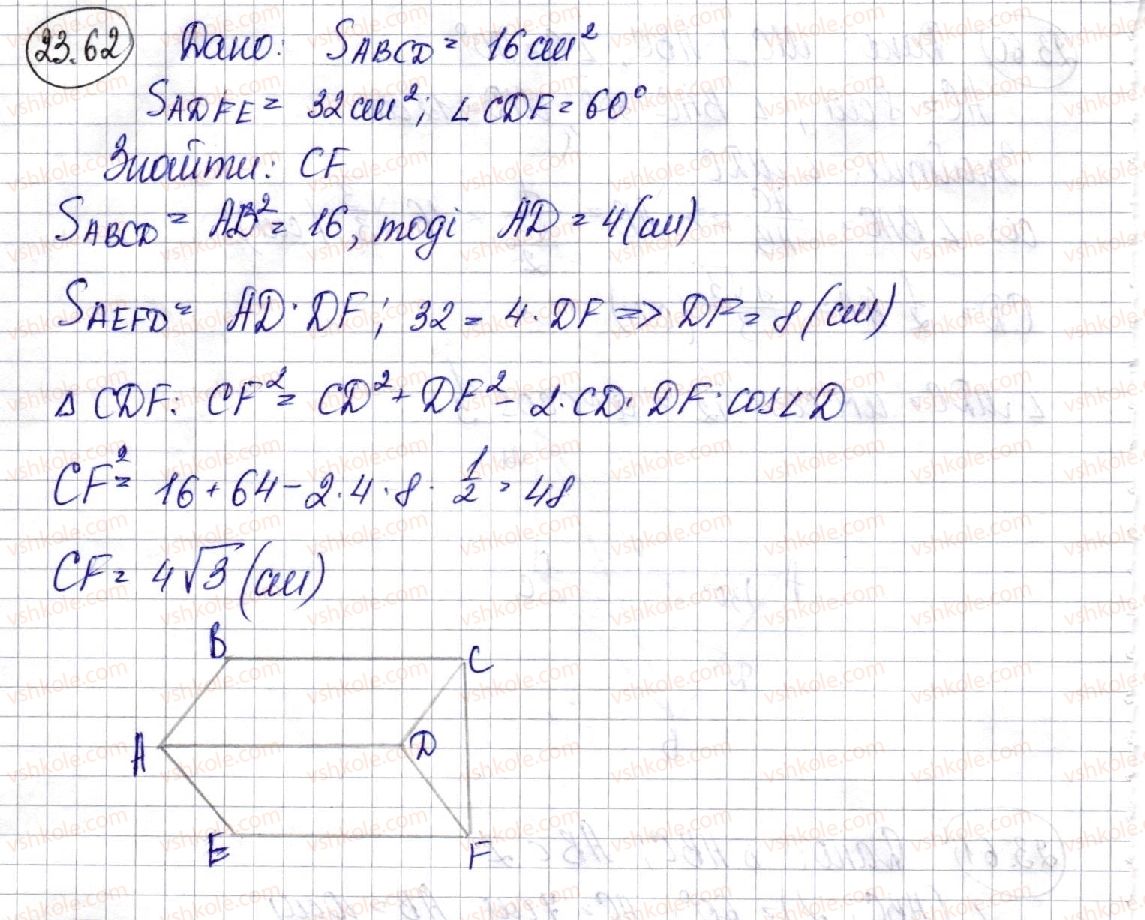 23.62 Дано: SABCD = 16 см²
SADFE = 32 см²; ∠CDF = 60°
Знайти: CF
SABCD = AB² = 16, тоді AD = 4 (см)
SAEFD = AD · DF; 32 = 4 · DF => DF = 8 (см)
△ CDF: CF² = CD² + DF² - 2 · CD · DF · cos∠D
CF² = 16 + 64 - 2 · 4 · 8 · 1/2 = 48
CF = 4√3 (см)
B
C
A
D
E
F
vshkole.com